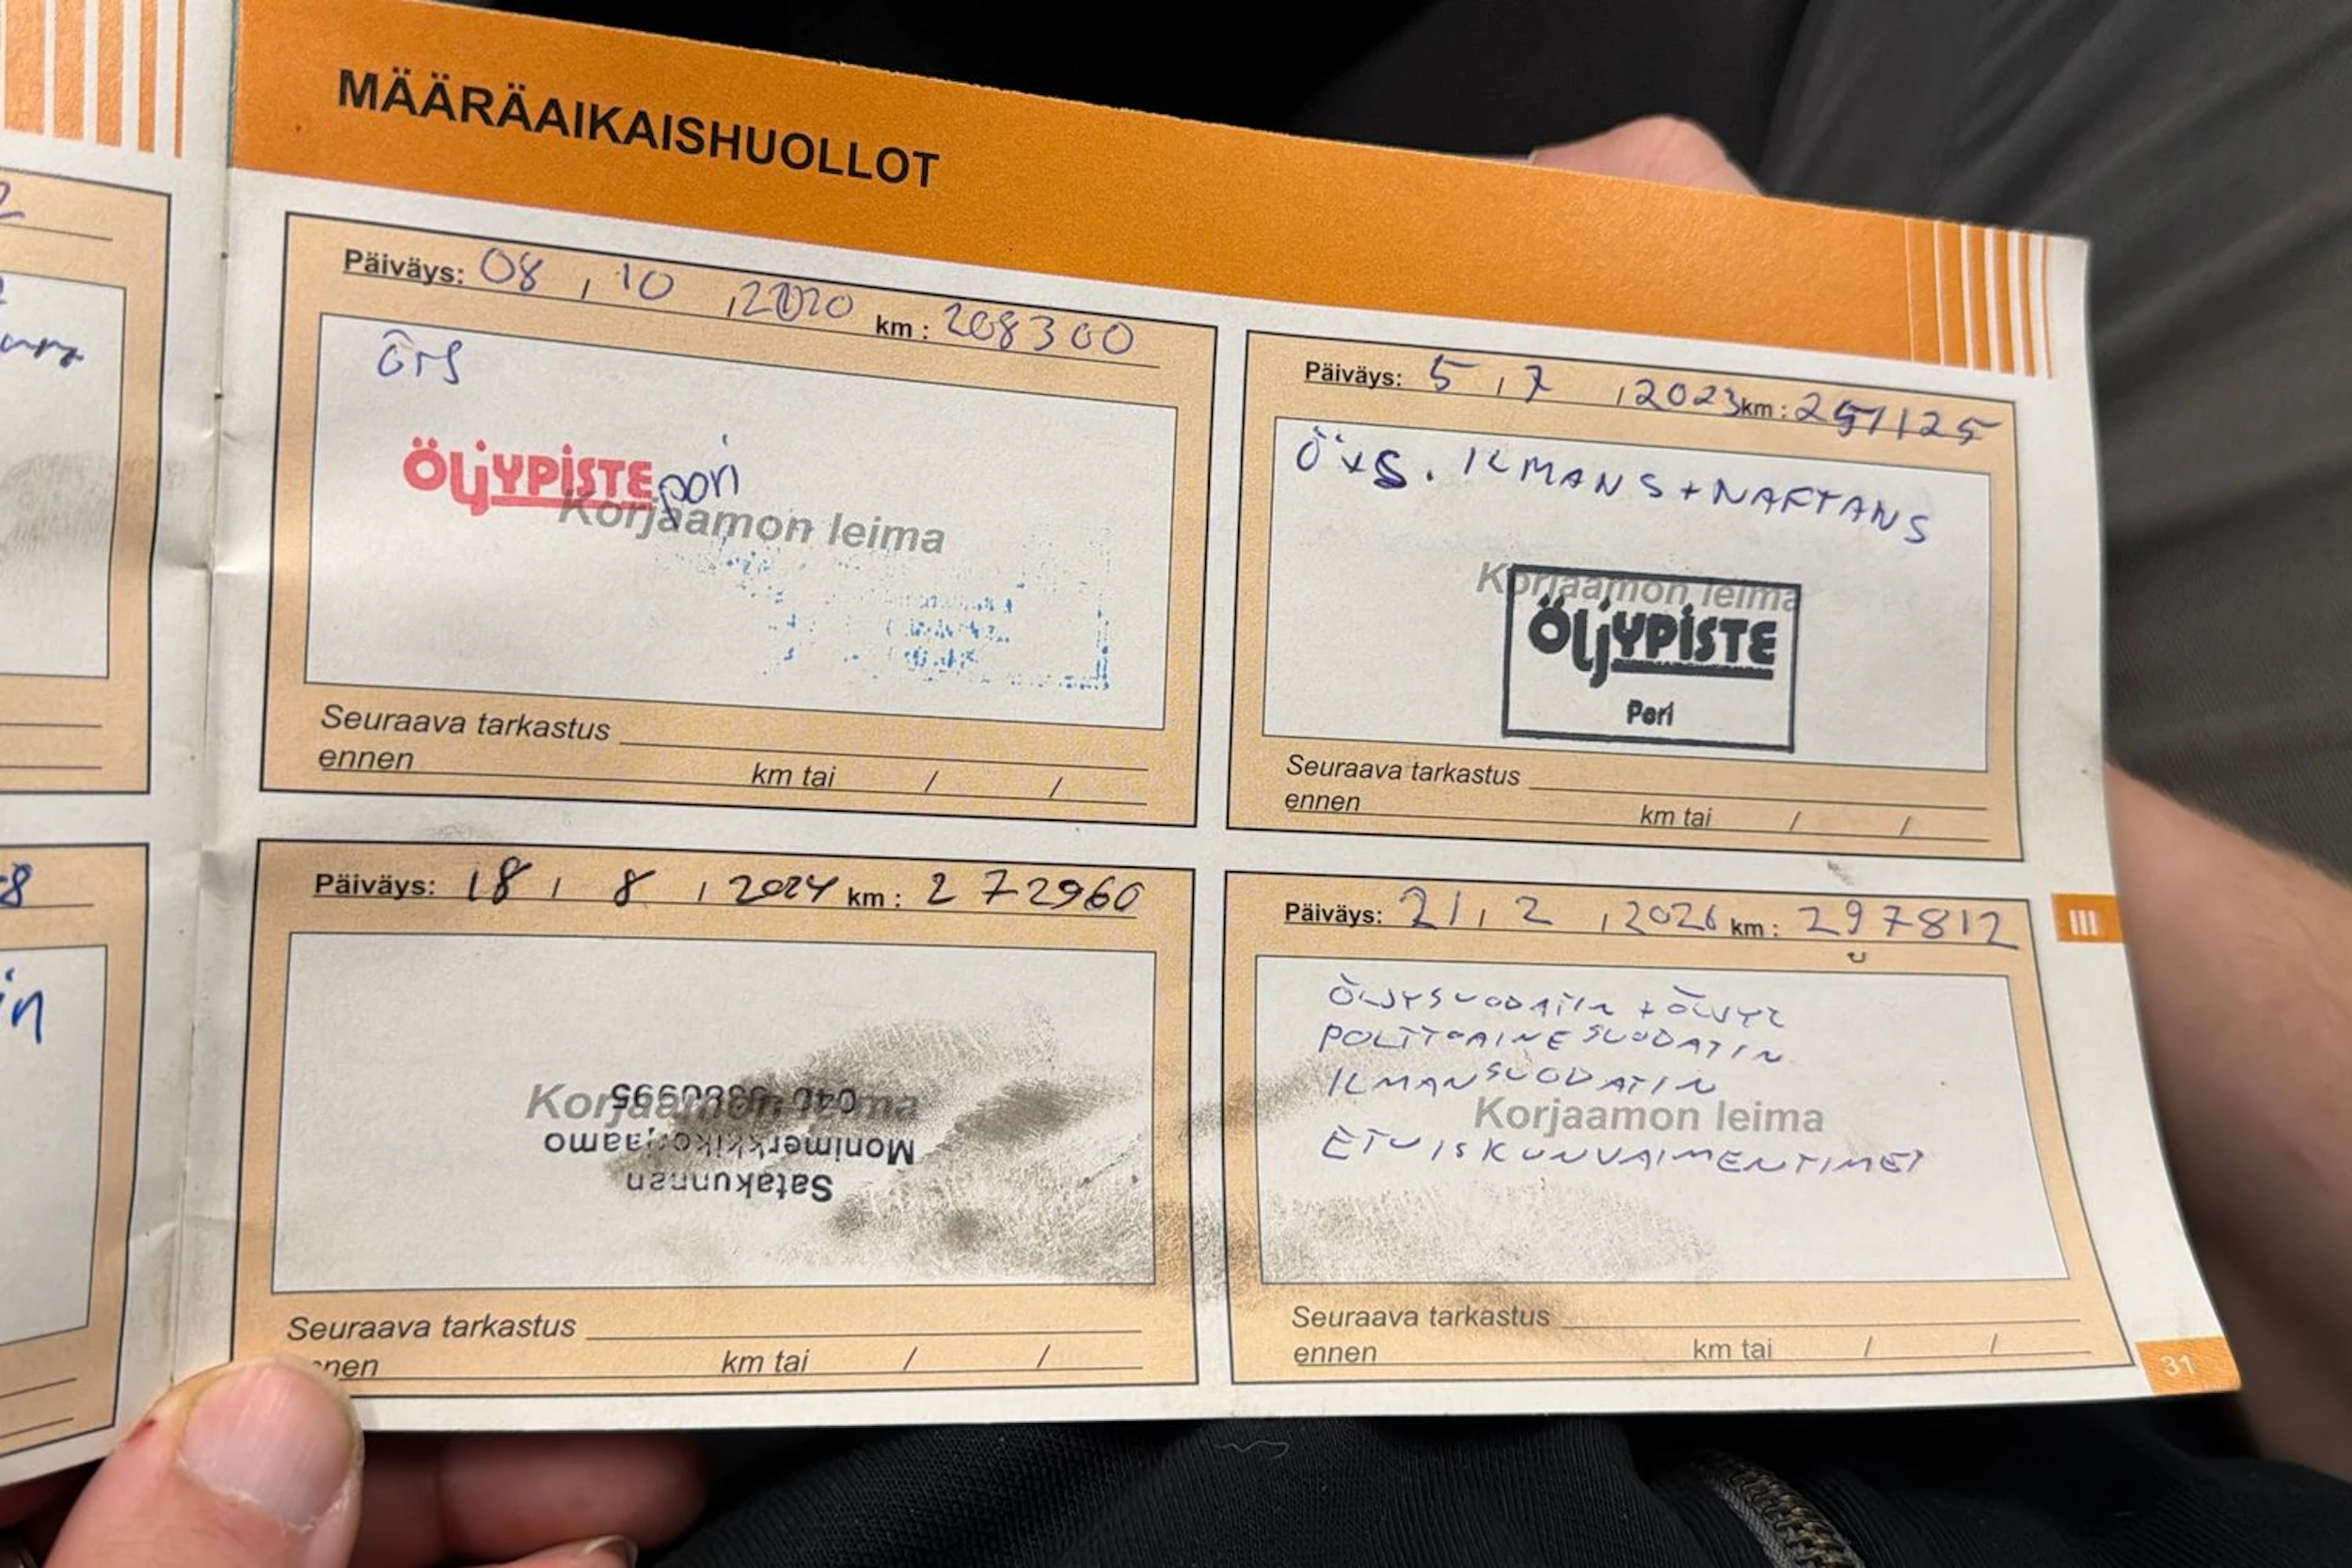 MÄÄRÄAIKAISHUOLLOT
Päiväys: 08 / 10 / 2020 km : 208300
Ö+S
ÖLJYPISTE pori
Korjaamon leima
Seuraava tarkastus
ennen km tai / /
Päiväys: 5 / 7 / 2023 km : 251125
Ö+S. ILMANS + NAFTANS
Korjaamon leima
ÖLJYPISTE
Pori
Seuraava tarkastus
ennen km tai / /
Päiväys: 18 / 8 / 2024 km : 272960
Korjaamon leima
Satakunnan
Monimerkkikorjaamo
Seuraava tarkastus
ennen km tai / /
Päiväys: 21 / 2 / 2026 km : 297812
ÖLJYSUODATIN + ÖLJYT
POLTTOAINESUODATIN
ILMANSUODATIN
Korjaamon leima
ETUISKUNVAIMENTIMET
Seuraava tarkastus
ennen km tai / /
III
31